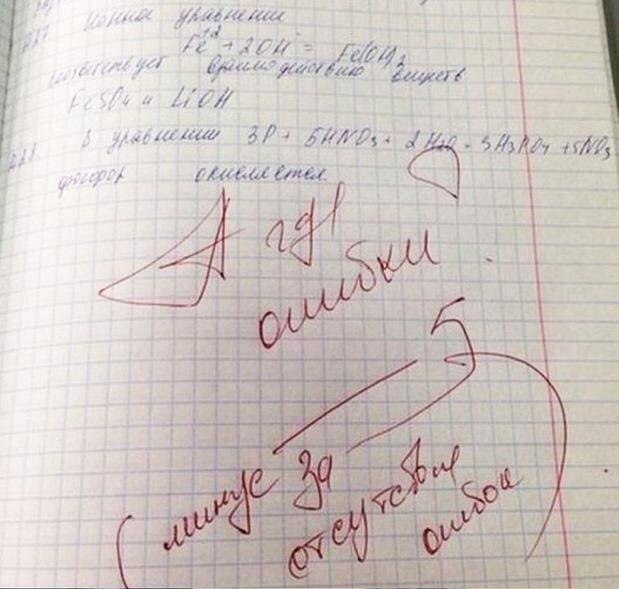 А27 Ионное уравнение
Fe⁺² + 2OH⁻ = Fe(OH)₂
соответствует взаимодействию веществ
FeSO₄ и LiOH
А28. В уравнении 3P + 5HNO₃ + 2H₂O = 3H₃PO₄ + 5NO
фосфор окисляется
А где
ошибки
5-
(минус за
отсутствие
ошибок